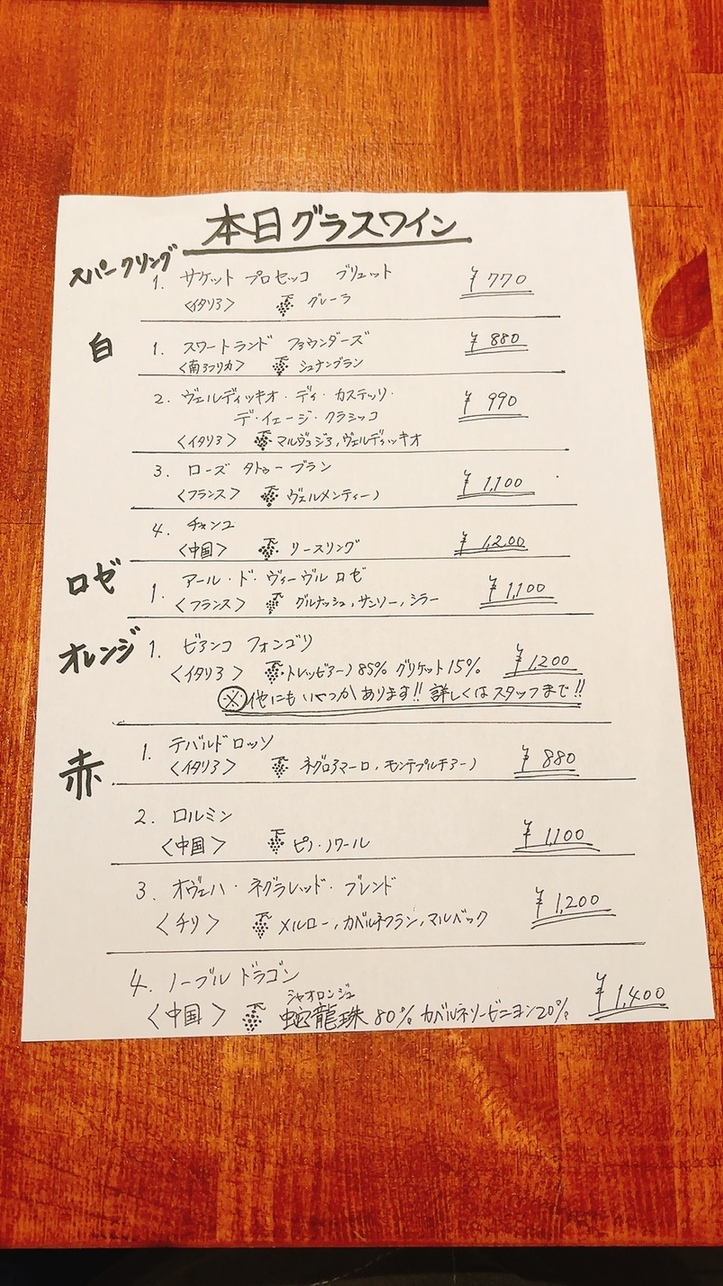 本日グラスワイン
スパークリング
1. サケット プロセッコ ブリュット ¥770
<イタリア> グレーラ
白
1. スワートランド ファウンダーズ ¥880
<南アフリカ> シュナンブラン
2. ヴェルディッキオ・ディ・カステッリ・
デ・イェージ・クラシッコ ¥990
<イタリア> マルヴァジア, ヴェルディッキオ
3. ローズ タトゥー ブラン ¥1,100
<フランス> ヴェルメンティーノ
4. チャンユ ¥1,200
<中国> リースリング
ロゼ
1. アール・ド・ヴィーヴル ロゼ ¥1,100
<フランス> グルナッシュ, サンソー, シラー
オレンジ
1. ビアンコ フォンゴリ ¥1,200
<イタリア> トレッビアーノ85% グリケット15%
※他にもいくつかあります!! 詳しくはスタッフまで!!
赤
1. テバルドロッソ ¥880
<イタリア> ネグロアマーロ, モンテプルチアーノ
2. ロルミン ¥1,100
<中国> ピノ・ノワール
3. オヴェハ・ネグラレッド・ブレンド ¥1,200
<チリ> メルロー, カベルネフラン, マルベック
4. ノーブル ドラゴン ¥1,400
シャオロンジュ
<中国> 蛇龍珠 80% カベルネソービニヨン20%